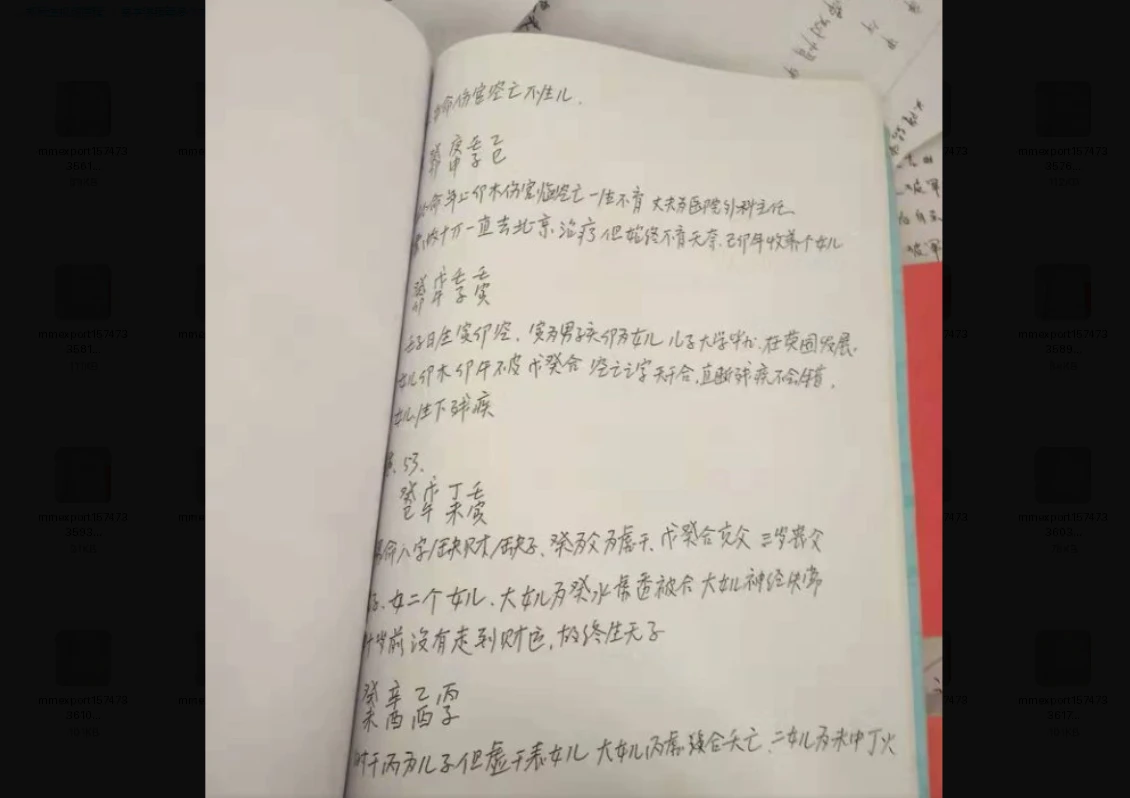 命伤官空亡不生儿.
癸 庚 壬 乙
卯 申 子 巳
命年上卯木伤官临空亡一生不育 丈夫为医院外科主任
十万一直去北京治疗但始终不育无奈.己卯年收养个女儿
癸 戊 壬 壬
卯 午 子 寅
壬子日生寅卯空.寅为男子亥卯为女儿 儿子大学毕业.在英国发展.
女儿卯木卯午不破戊癸合 空亡之字天干合,直断残疾不会错.
女儿生下残疾
53.
癸 戊 丁 壬
巳 午 未 寅
命八字缺财缺子、癸为父为虚干、戊癸合克父 三岁丧父
女二个女儿、大女儿为癸水虚透被合 大女儿神经失常
岁前没有走到财运,故终生无子
癸 辛 乙 丙
未 酉 酉 子
时干丙为儿子但虚干表女儿 大女儿丙虚 合夭亡、二女儿为未中丁火
mmexport157473
mmexport157473
mmexport157473
mmexport157473
mmexport157473
mmexport157473
mmexport157473
mmexport157473